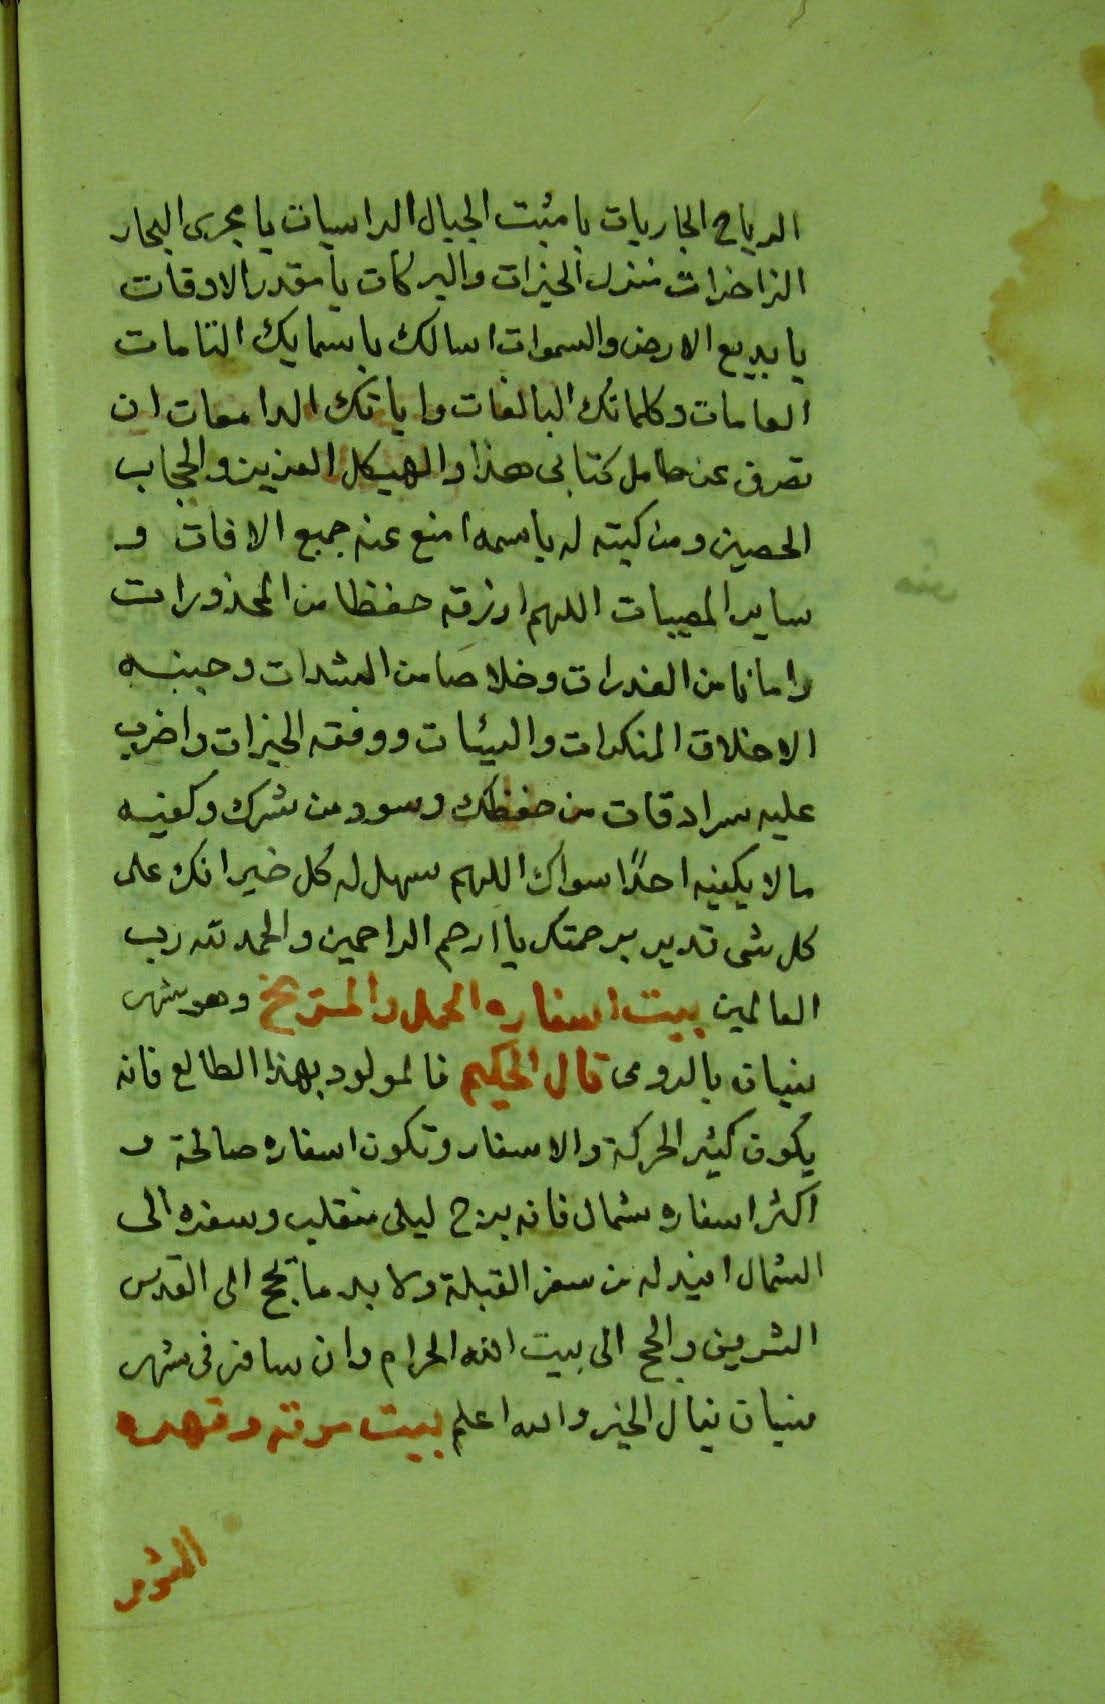 الرياح الجاريات يا مثبت الجبال الراسيات يا مجرى البحار
الزاخرات منزل الخيرات والبركات يا مقدر الاوقات
يا بديع الارض والسموات اسالك باسمايك التامات
العامات وكلماتك البالغات واياتك الدامغات ان
تصرف عن حامل كتابى هذا والهيكل العزيز والحجاب
الحصين ومن كتبته له باسمه امنع عنه جميع الافات و
ساير المصيبات اللهم ارزقه حفظا من المحذورات
وامانا من الغدرات وخلاصا من الشدات وجنبه
الاخلاق المنكرات والسيئات ووفقه الخيرات واضرب
عليه سرادقات من حفظك وسور من سترك وكفيه
ما لا يكفيه احدًا سواك اللهم سهل له كل خير انك على
كل شى قدير برحمتك يا ارحم الراحمين والحمد لله رب
العالمين بيت اسفاره الحمل والمريخ وهو شهر
نيسان بالرومى قال الحكيم فالمولود بهذا الطالع فانه
يكون كثير الحركة والاسفار وتكون اسفاره صالحة و
اكثر اسفاره شمال فانه برج ليلى منقلب وسفره الى
الشمال افيد له من سفر القبلة ولا بد ما يحج الى القدس
الشريف والحج الى بيت الله الحرام وان سافر فى شهر
نيسان ينال الخير والله اعلم بيت سوقه وقهره